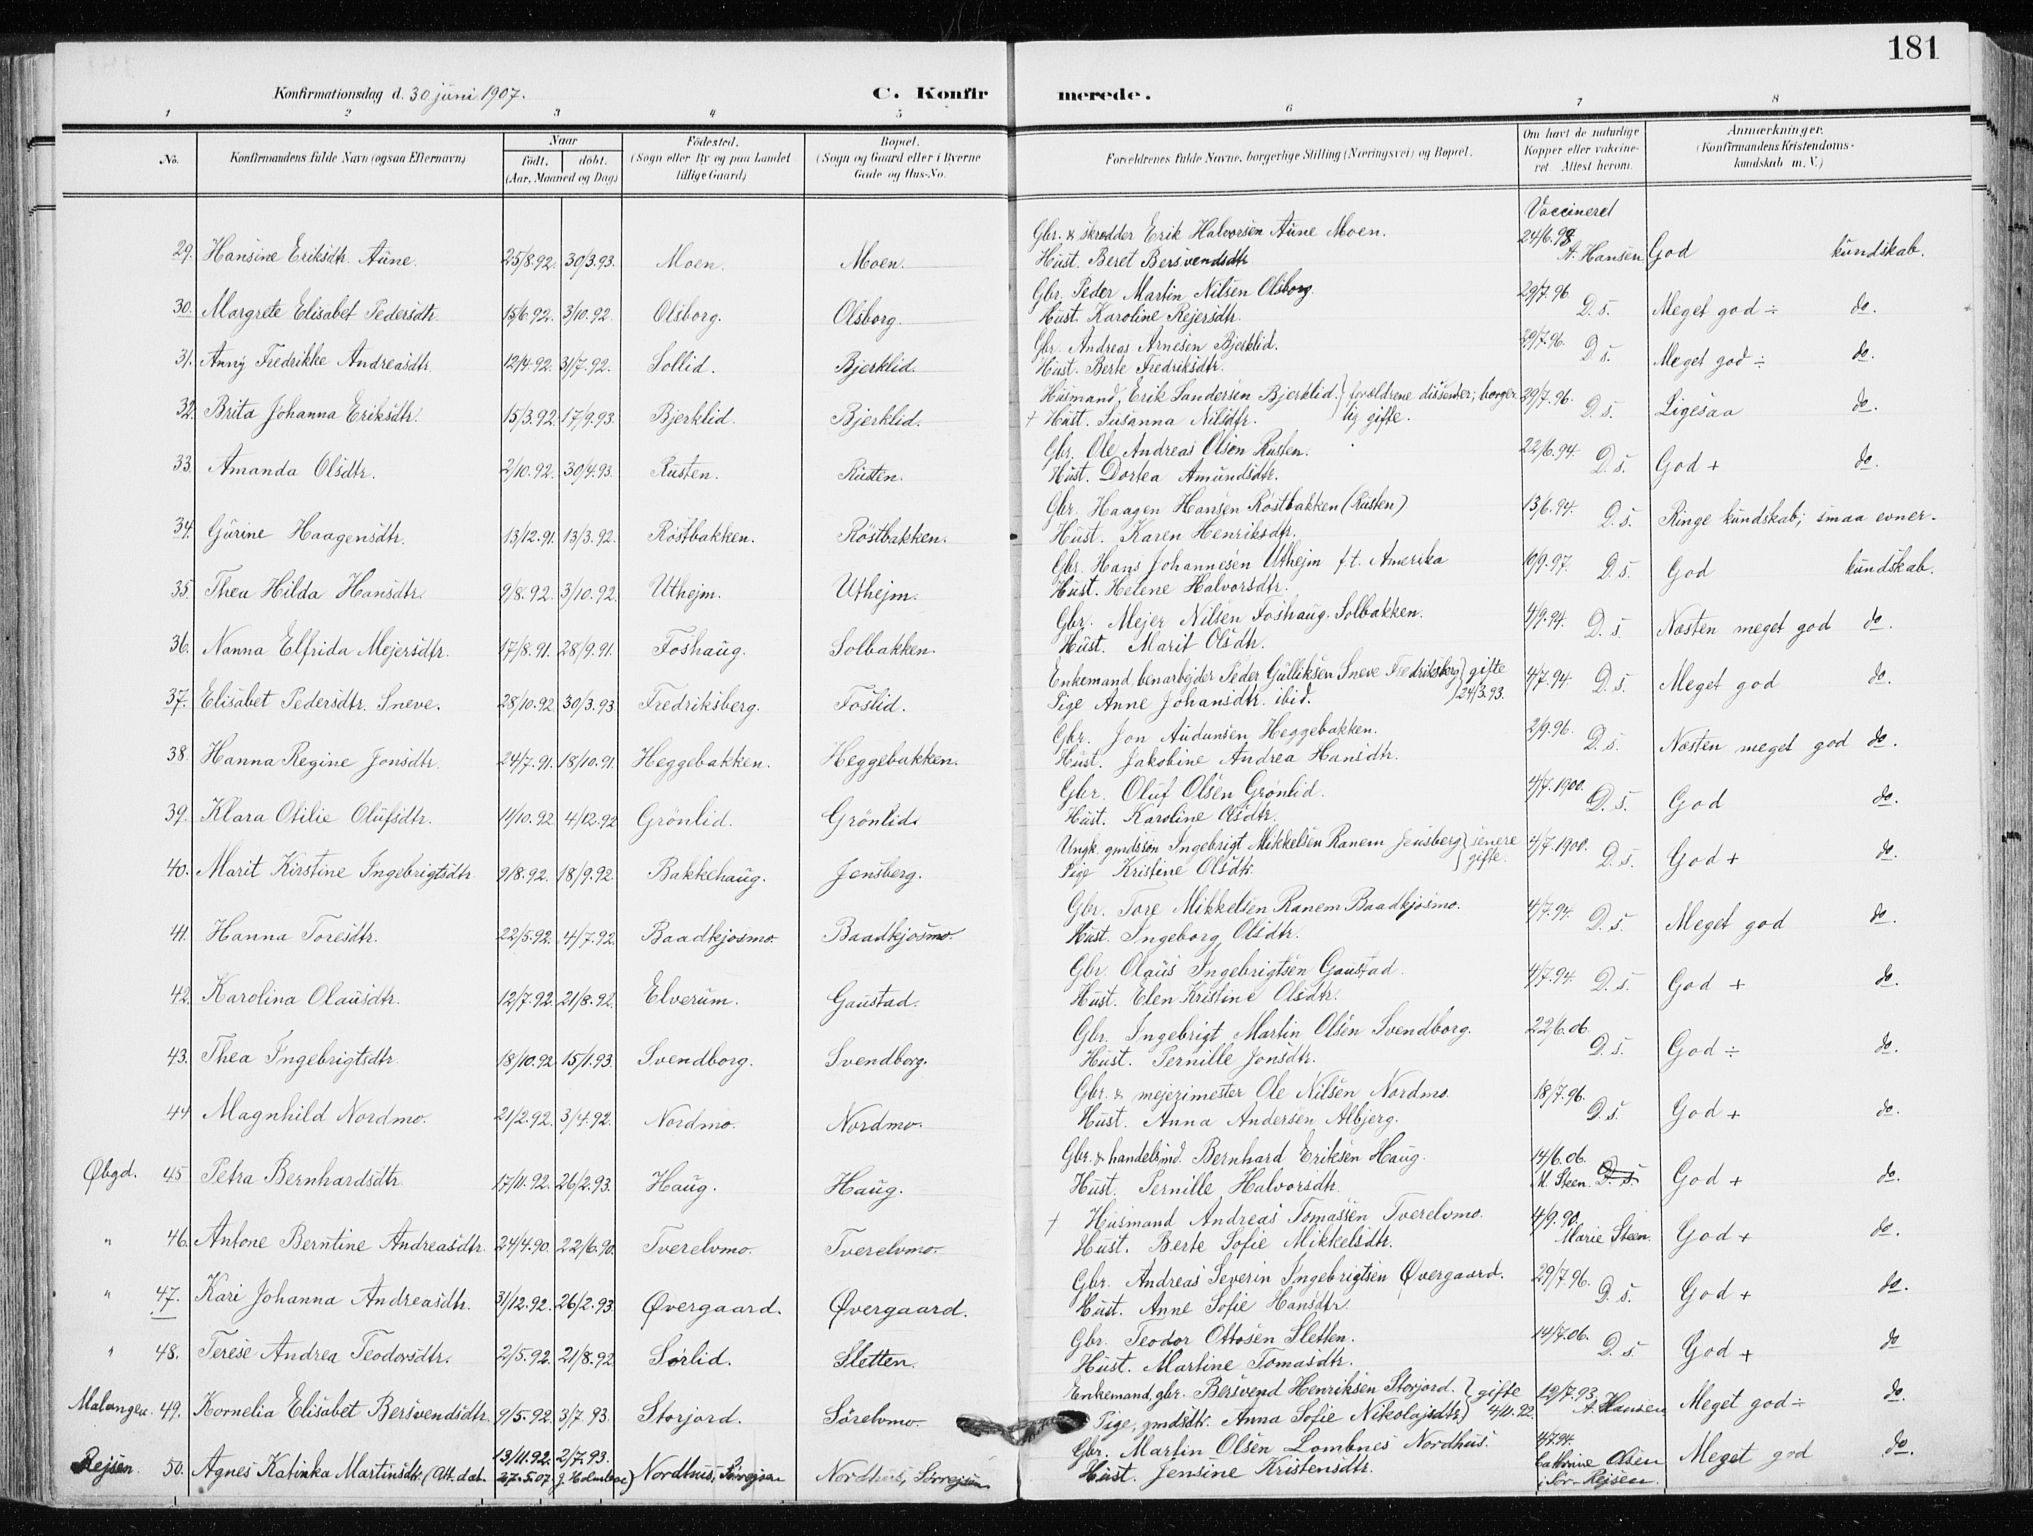 181
Konfirmationsdag d. 30 juni 1907.
C. Konfir merede.
1 2 3 4 5 6 7 8
No. Konfirmandens fulde Navn (ogsaa Efternavn) Naar født. døbt. (Aar, Maaned og Dag) Fødested. (Sogn eller By og paa Landet tillige Gaard) Bopæl. (Sogn og Gaard eller i Byerne Gade og Hus-No. Forældrenes fulde Navne, borgerlige Stilling (Næringsvei) og Bopæl. Om havt de naturlige Kopper eller vakcineret. Attest herom. Anmærkninger. (Konfirmandens Kristendomskundskab m. V.)
Vaccineret
29. Hansine Eriksdtr. Aune. 25/8.92. 30/3.93. Moen. Moen. Gbr. & skrædder Erik Halvorsen Aune Moen. 24/6.98
Hust. Beret Bersvendsdtr. A. Hansen God kundskab.
30. Margrete Elisabet Pedersdtr. 15/6.92. 3/10.92. Olsborg. Olsborg. Gbr. Peder Martin Nilsen Olsborg. 29/7.96.
Hust. Karoline Rejersdtr. D. s. Meget god ÷ do.
31. Anny Fredrikke Andreasdtr. 12/4.92. 31/7.92. Sollid. Bjerklid. Gbr. Andreas Arnesen Bjerklid. 29/7.96.
Hust. Berte Fredriksdtr. D. s. Meget god ÷ do.
32. Brita Johanna Eriksdtr. 15/3.92. 17/9.93. Bjerklid. Bjerklid. Husmand, Erik Sandersen Bjerklid. } forældrene dissenter; borger 29/7.96.
+ Hust. Susanna Nilsdtr. lig gifte. D. s. Ligesaa do.
33. Amanda Olsdtr. 2/10.92. 30/4.93. Rusten. Rusten. Gbr. Ole Andreas Olsen Rusten. 22/6.94.
Hust. Dortea Amundsdtr. D. s. God + do.
34. Gurine Haagensdtr. 13/12.91. 13/3.92. Röstbakken. Röstbakken. Gbr. Haagen Hansen Röstbakken (Rusten) 13/6.94.
Hust. Karen Henriksdtr. D. s. Ringe kundskab; smaa evner.
35. Thea Hilda Hansdtr. 9/8.92. 3/10.92. Uthejm. Uthejm. Gbr. Hans Johannesen Uthejm f.t. Amerika 10/9.97.
Hust. Helene Halvorsdtr. D. s. God kundskab.
36. Nanna Elfrida Mejersdtr. 17/8.91. 28/9.91. Foshaug. Solbakken. Gbr. Mejer Nilsen Foshaug. Solbakken. 4/9.94.
Hust. Marit Olsdtr. D. s. Næsten meget god do.
37. Elisabet Pedersdtr. Sneve. 28/10.92 30/3.93 Fredriksberg. Foslid. Enkemand, benarbejder Peder Gulliksen Sneve Fredriksberg } gifte 4/7.94
Pige Anne Johansdtr. ibid. 24/3.93. D. s. Meget god do.
38. Hanna Regine Jonsdtr. 24/7.91. 18/10.91. Heggebakken. Heggebakken. Gbr. Jon Audunsen Heggebakken. 2/9.96.
Hust. Jakobine Andrea Hansdtr. D. s. Næsten meget god do.
39. Klara Otilie Olufsdtr. 11/10.92 4/12.92 Grönlid. Grönlid. Gbr. Oluf Olsen Grönlid. 4/7.1900.
Hust. Karoline Olsdtr. D. s. God do.
40. Marit Kirstine Ingebrigtsdtr. 9/8.92. 18/9.92. Bakkehaug. Jensberg. Ungk. gmdssøn Ingebrigt Mikkelsen Ranem Jensberg } senere 4/7.1900.
Pige Kristine Olsdtr. gifte. D. s. God + do.
41. Hanna Toresdtr. 22/5.92. 4/7.92. Baadkjosmo. Baadkjosmo. Gbr. Tore Mikkelsen Ranem Baadkjosmo. 4/7.94.
Hust. Ingeborg Olsdtr. D. s. Meget god do.
42. Karolina Olausdtr. 12/7.92. 21/8.92. Elverum. Gaustad. Gbr. Olaus Ingebrigtsen Gaustad. 4/7.94.
Hust. Elen Kristine Olsdtr. D. s. God + do.
43. Thea Ingebrigtsdtr. 18/10.92 15/1.93. Svendborg. Svendborg. Gbr. Ingebrigt Martin Olsen Svendborg. 22/6.06.
Hust. Pernille Jonsdtr. D. s. God ÷ do.
44 Magnhild Nordmo. 21/2.92. 3/4.92. Nordmo. Nordmo. Gbr. & mejerimester Ole Nilsen Nordmo. 18/7.96.
Hust. Anna Andersen Albjerg. D. s. God + do.
Øbgd. 45 Petra Bernhardsdtr. 17/11.92. 26/2.93. Haug. Haug. Gbr. & handelsmd. Bernhard Eriksen Haug. 14/6.06.
Hust. Pernille Halvorsdtr. M. Steen. D. s. God + do.
" 46. Antone Berntine Andreasdtr. 24/4.90. 22/6.90. Tverelvmo. Tverelvmo. + Husmand Andreas Tomassen Tverelvmo. 4/9.90.
Hust. Berte Sofie Mikkelsdtr. Marie Steen. God + do.
" 47. Kari Johanna Andreasdtr. 31/12.92. 26/2.93. Øvergaard. Øvergaard. Gbr. Andreas Severin Ingebrigtsen Øvergaard. 29/7.96.
Hust. Anne Sofie Hansdtr. D. s. God + do.
" 48. Terese Andrea Teodorsdtr. 2/5.92. 21/8.92 Sörlid. Sletten. Gbr. Teodor Ottosen Sletten. 14/7.06.
Hust. Martine Tomasdtr. D. s. God + do
Malangen. 49. Kornelia Elisabet Bersvendsdtr. 9/5.92. 3/7.93. Storjord. Sörelvmo. Enkemand, gbr. Bersvend Henriksen Storjord. } gifte 12/7.93.
Pige, gmdsdtr. Anna Sofie Nikolajsdtr. 4/11.92. A. Hansen Meget god ÷ do.
Rejsen. 50. Agnes Katinka Martinsdtr. (Att. dat. 13/11.92. 2/7.93. 27.5.07 J. Holmboe) Nordhus, Sørrejsen Nordhus, Sørrejsen Gbr. Martin Olsen Lombnes Nordhus. 4/7.94.
Hust. Jensine Kristensdtr. Cathrine Olsen i Sør-Rejsen. Meget god do